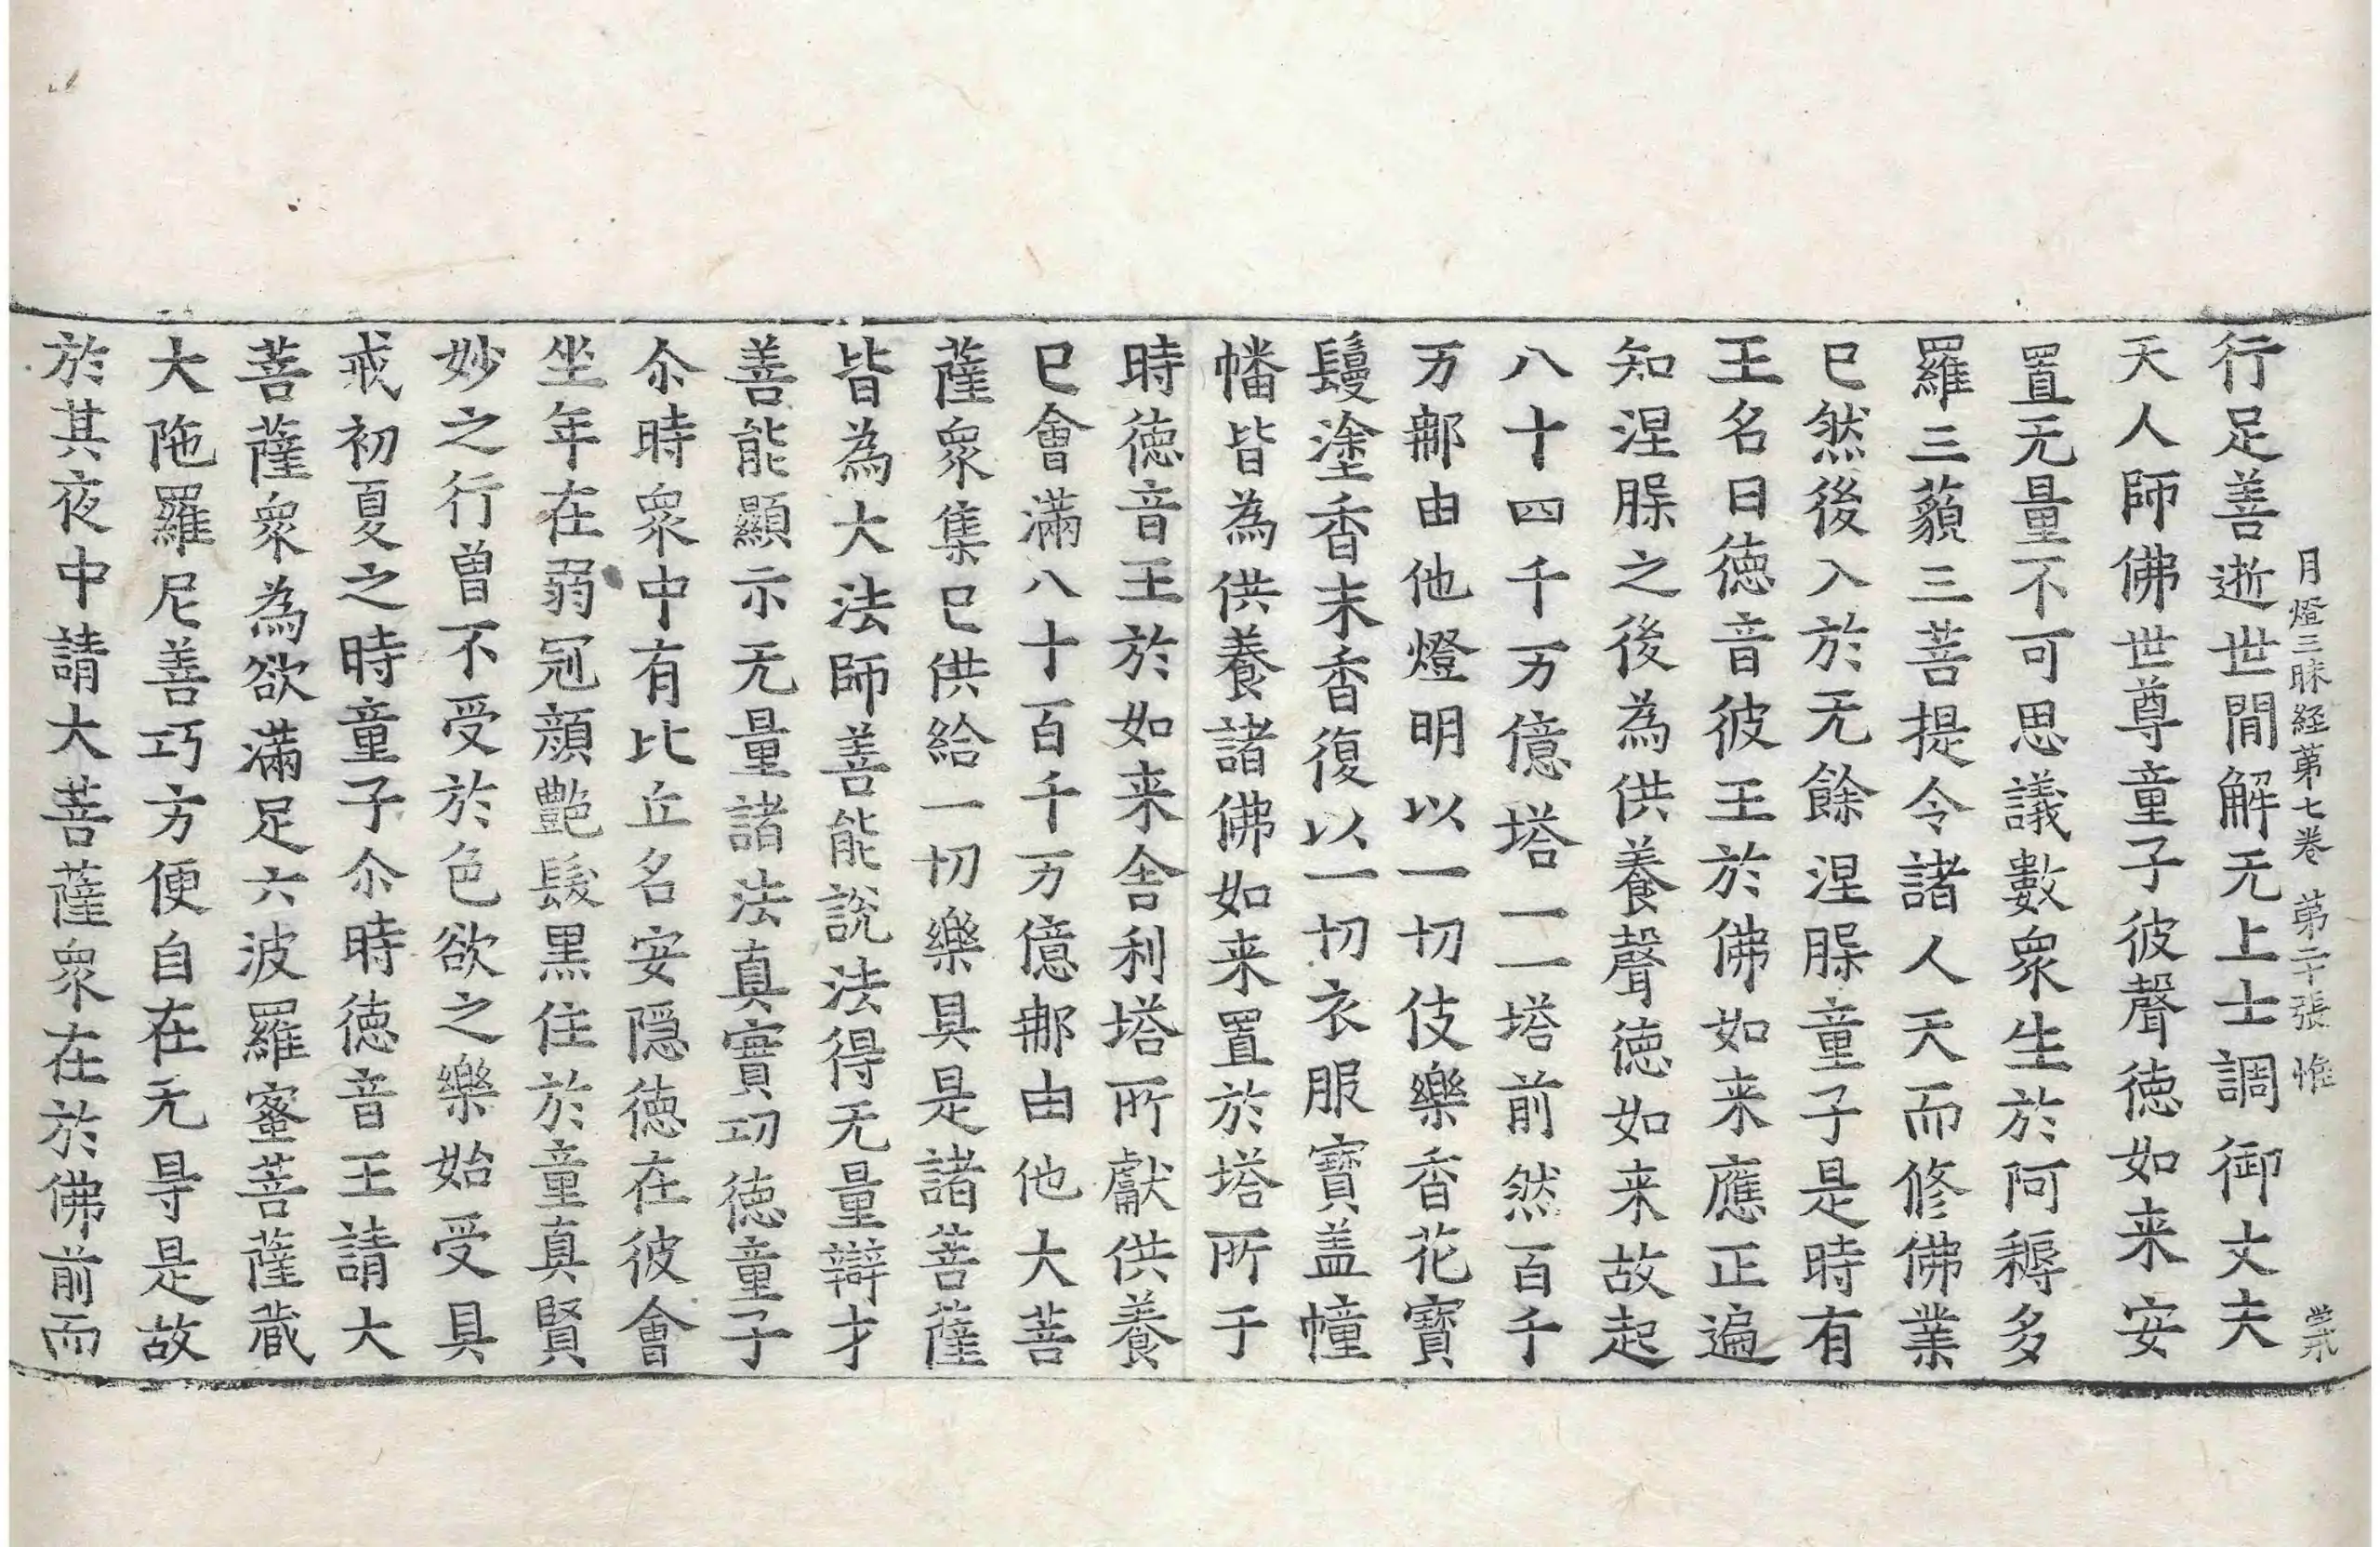 月燈三昧経第七巻 第二十張 惟
行足善逝世間解无上士調御丈夫
天人師佛世尊童子彼聲徳如来安
置无量不可思議數衆生於阿耨多
羅三藐三菩提令諸人天而修佛業
已然後入於无餘涅槃童子是時有
王名曰徳音彼王於佛如来應正遍
知涅槃之後為供養聲徳如来故起
八十四千万億塔一一塔前然百千
万郍由他燈明以一切伎樂香花寶
鬘塗香末香復以一切衣服寶盖幢
幡皆為供養諸佛如来置於塔所于
時徳音王於如来舎利塔所獻供養
已會滿八十百千万億郍由他大菩
薩衆集已供給一切樂具是諸菩薩
皆為大法師善能說法得无量辯才
善能顯示无量諸法真實功徳童子
尒時衆中有比丘名安隠徳在彼會
坐年在弱冠顔艷髮黒住於童真賢
妙之行曾不受於色欲之樂始受具
戒初夏之時童子尒時徳音王請大
菩薩衆為欲滿足六波羅蜜菩薩蔵
大陁羅尼善巧方便自在无㝵是故
於其夜中請大菩薩衆在於佛前而